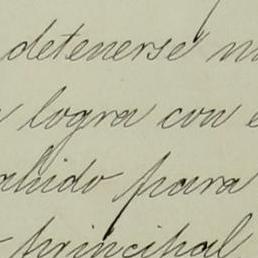 detenerse
logra con
para
principal